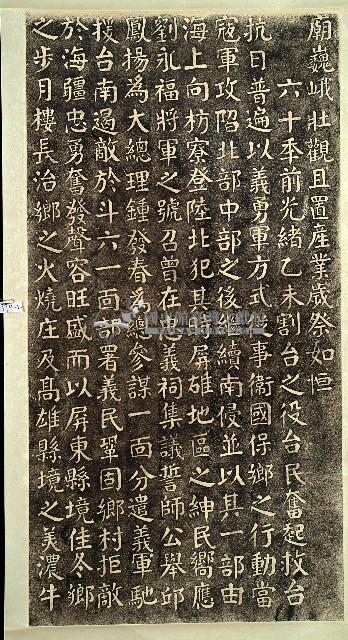 廟巍峨壯觀且置産業歲祭如恒
六十年前光緒乙未割台之役台民奮起救台
抗日普遍以義勇軍方式從事衞國保鄉之行動當
寇軍攻陷北部中部之後繼續南侵並以其一部由
海上向枋寮登陸北犯其時屏雄地區之紳民嚮應
劉永福將軍之號召曾在忠義祠集議誓師公舉邱
鳳揚為大總理鍾發春為總參謀一面分遣義軍馳
援台南遏敵於斗六一面部署義民鞏固鄉村拒敵
於海疆忠勇奮發聲容旺盛而以屏東縣境佳冬鄉
之步月樓長治鄉之火燒庄及髙雄縣境之美濃牛